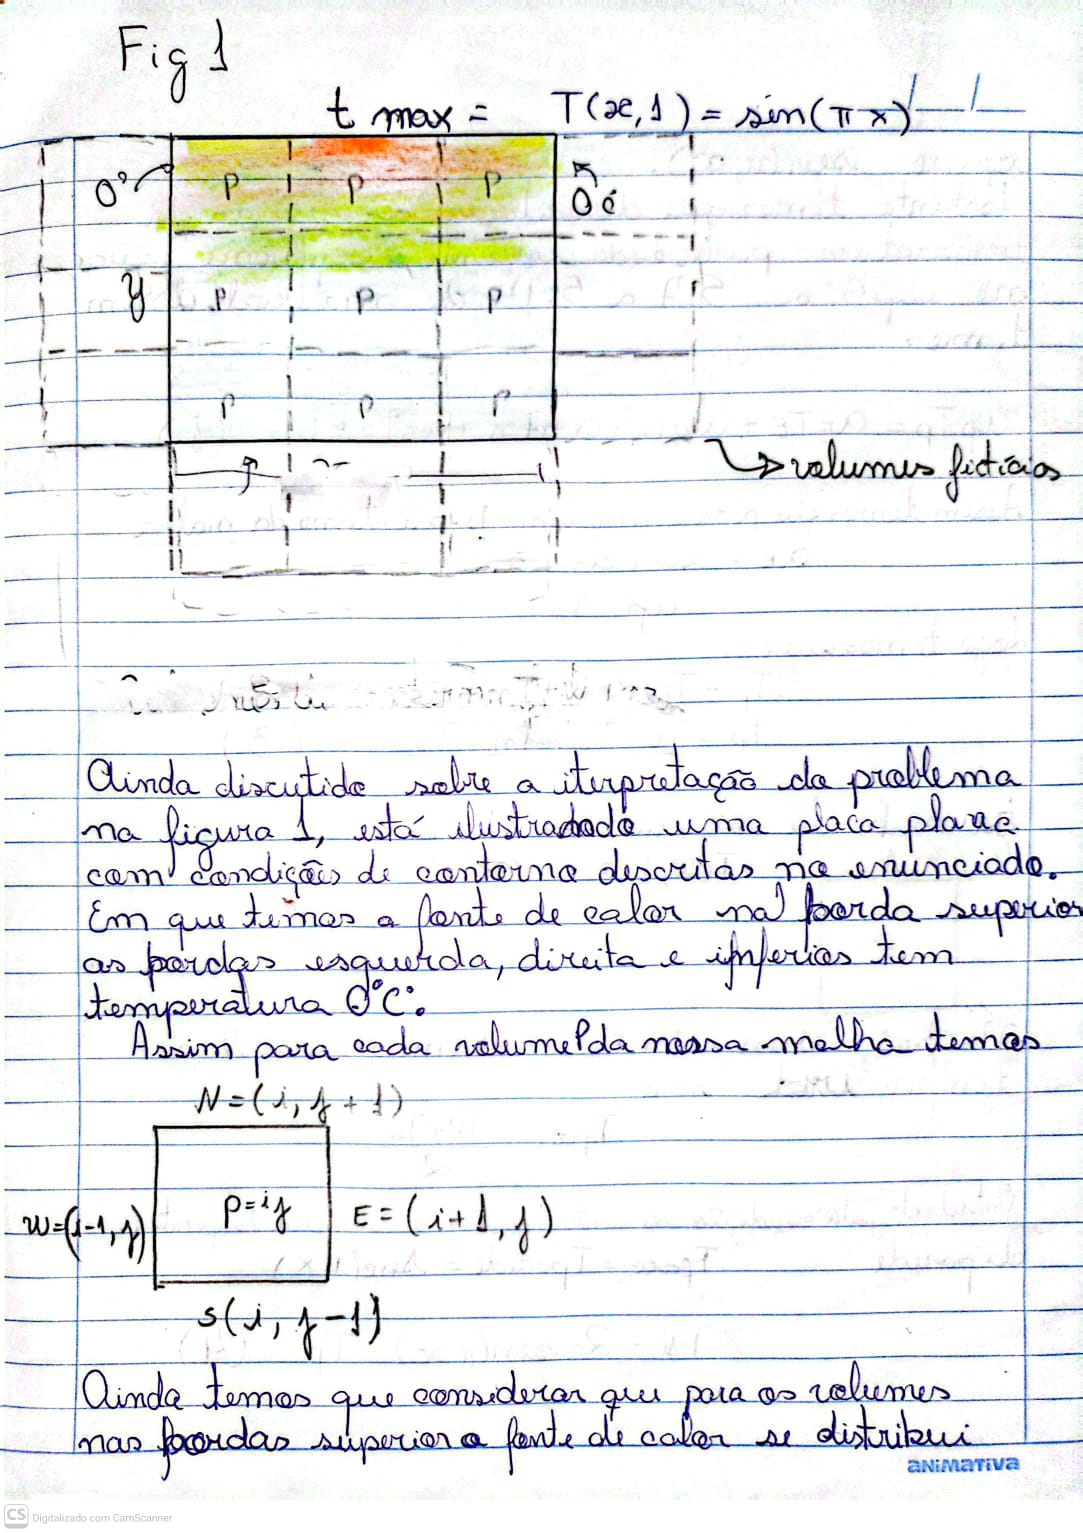 Fig 1
t max = T(x,1) = sin(π x)
0°
P P P
0°
y
P P P
P P P
volumes fictícios
Ainda discutido sobre a iterpretação do problema
na figura 1, está ilustrado uma placa plana
com condições de contorno descritas no enunciado.
Em que temos a fonte de calor na borda superior
as bordas esquerda, direita e inferior tem
temperatura 0°C.
Assim para cada volume P da nossa malha temos
N = (i, j + 1)
W=(i-1, j)
P=ij
E = (i+1, j)
S(i, j-1)
Ainda temos que considerar que para os volumes
nas bordas superior a fonte de calor se distribui
ANiMATiVA
CS Digitalizado com CamScanner